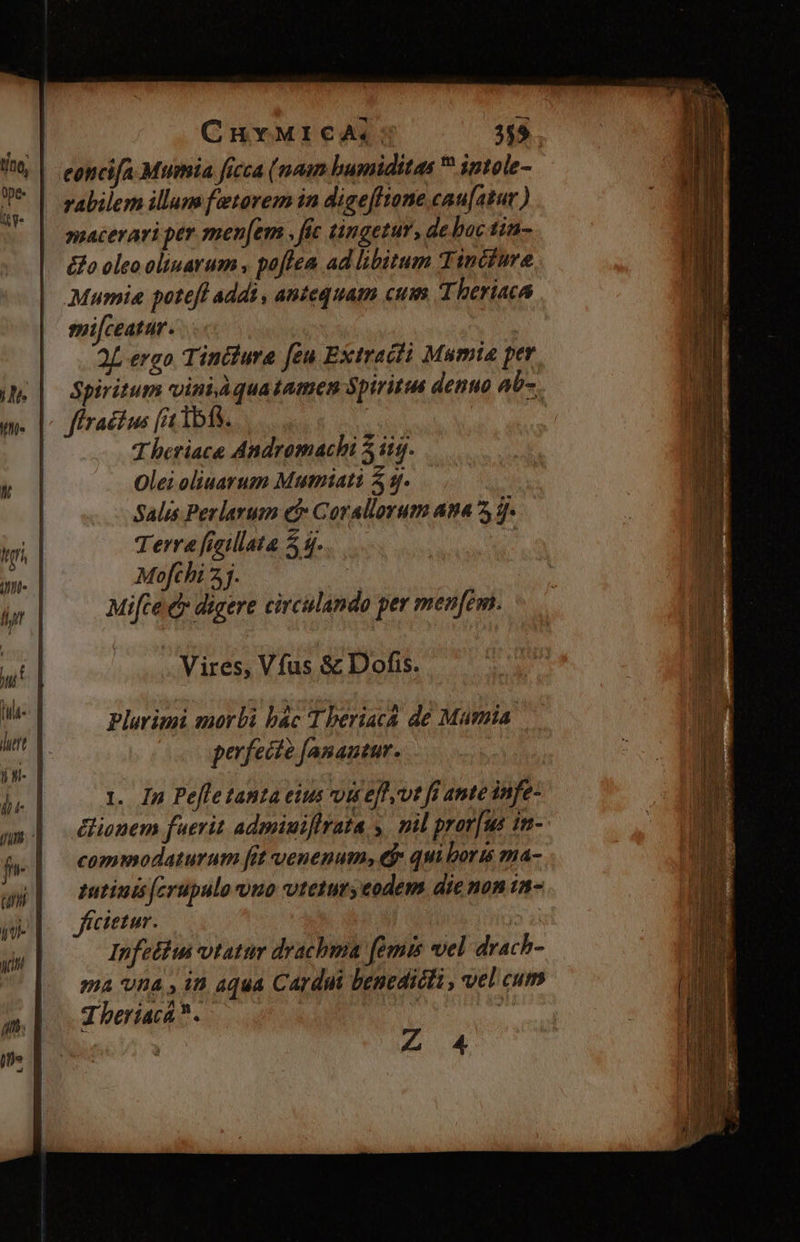 CHYMICAE 359
concisa Mumia sicca (nam humiditas ᵐ intole-
rabilem illum fœtorem in digestione causatur)
macerari per mensem, sic tingetur, de hoc tin-
cto oleo oliuarum, postea ad libitum Tincturæ
Mumiæ potest addi, antequam cum Theriaca
misceatur.
♃ ergo Tincturæ seu Extracti Mumiæ per
Spiritum vini, à qua tamen Spiritus denuo ab-
stractus sit ℔ß.
Theriacæ Andromachi ℥ iiij.
Olei oliuarum Mumiati ℥ ij.
Salis Perlarum & Corallorum ana ʒ ij.
Terræ sigillatæ ℥ ij.
Moschi ʒj.
Misce & digere circulando per mensem.
Vires, Vsus & Dosis.
Plurimi morbi hâc Theriacâ de Mumia
perfectè sanantur.
1. In Peste tanta eius vis est, vt si ante infe-
ctionem fuerit administrata, nil prorsus in-
commodaturum sit venenum, & qui horis ma-
tutinis scrupulo vno vtetur, eodem die non in-
ficietur.
Infectus vtatur drachma semis vel drach-
ma vna, in aqua Cardui benedicti, vel cum
Theriacâ ⁿ.
Z 4